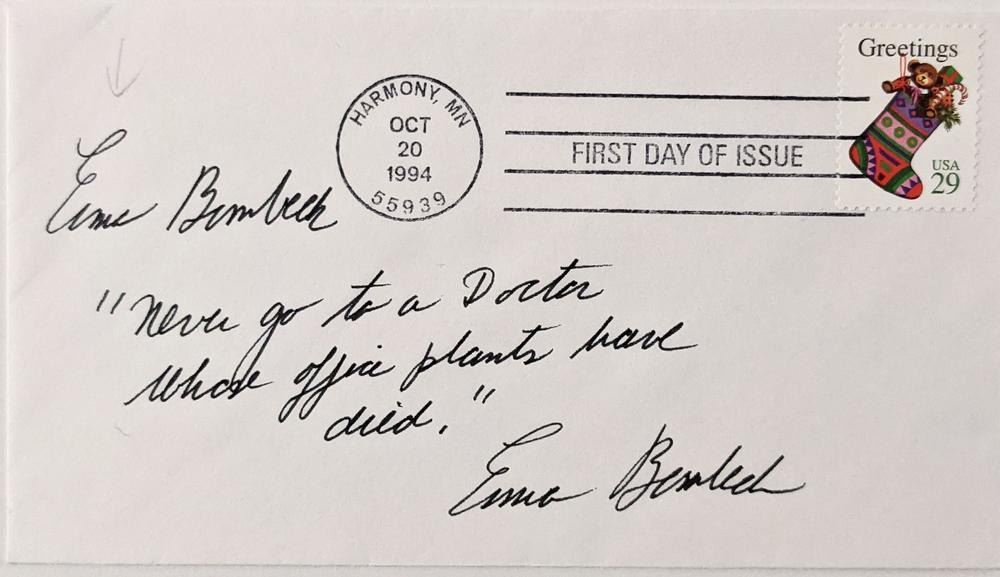 Greetings
HARMONY, MN
OCT
20
1994
55939
FIRST DAY OF ISSUE
USA
29
Erma Bombeck
"Never go to a Doctor
whose office plants have
died."
Erma Bombeck